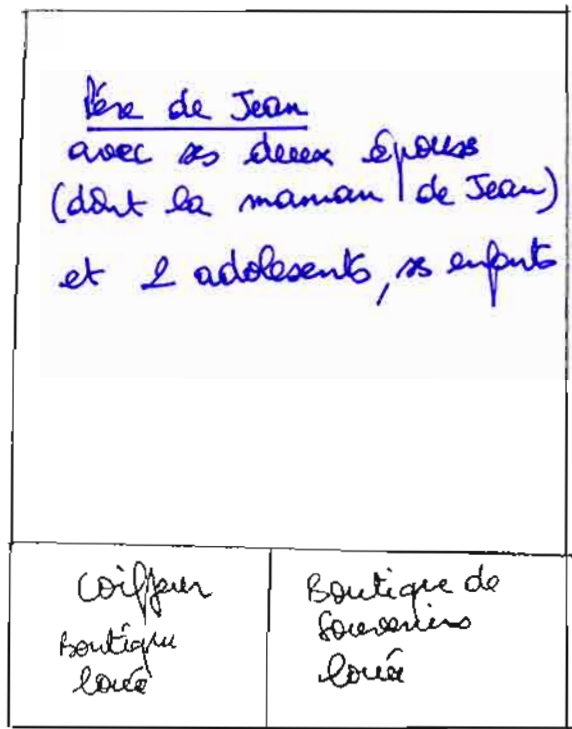 Père de Jean
avec ses deux épouses
(dont la maman de Jean)
et 2 adolesents, ses enfants
Coiffeur
Boutique
louée
Boutique de
Souvenirs
louée